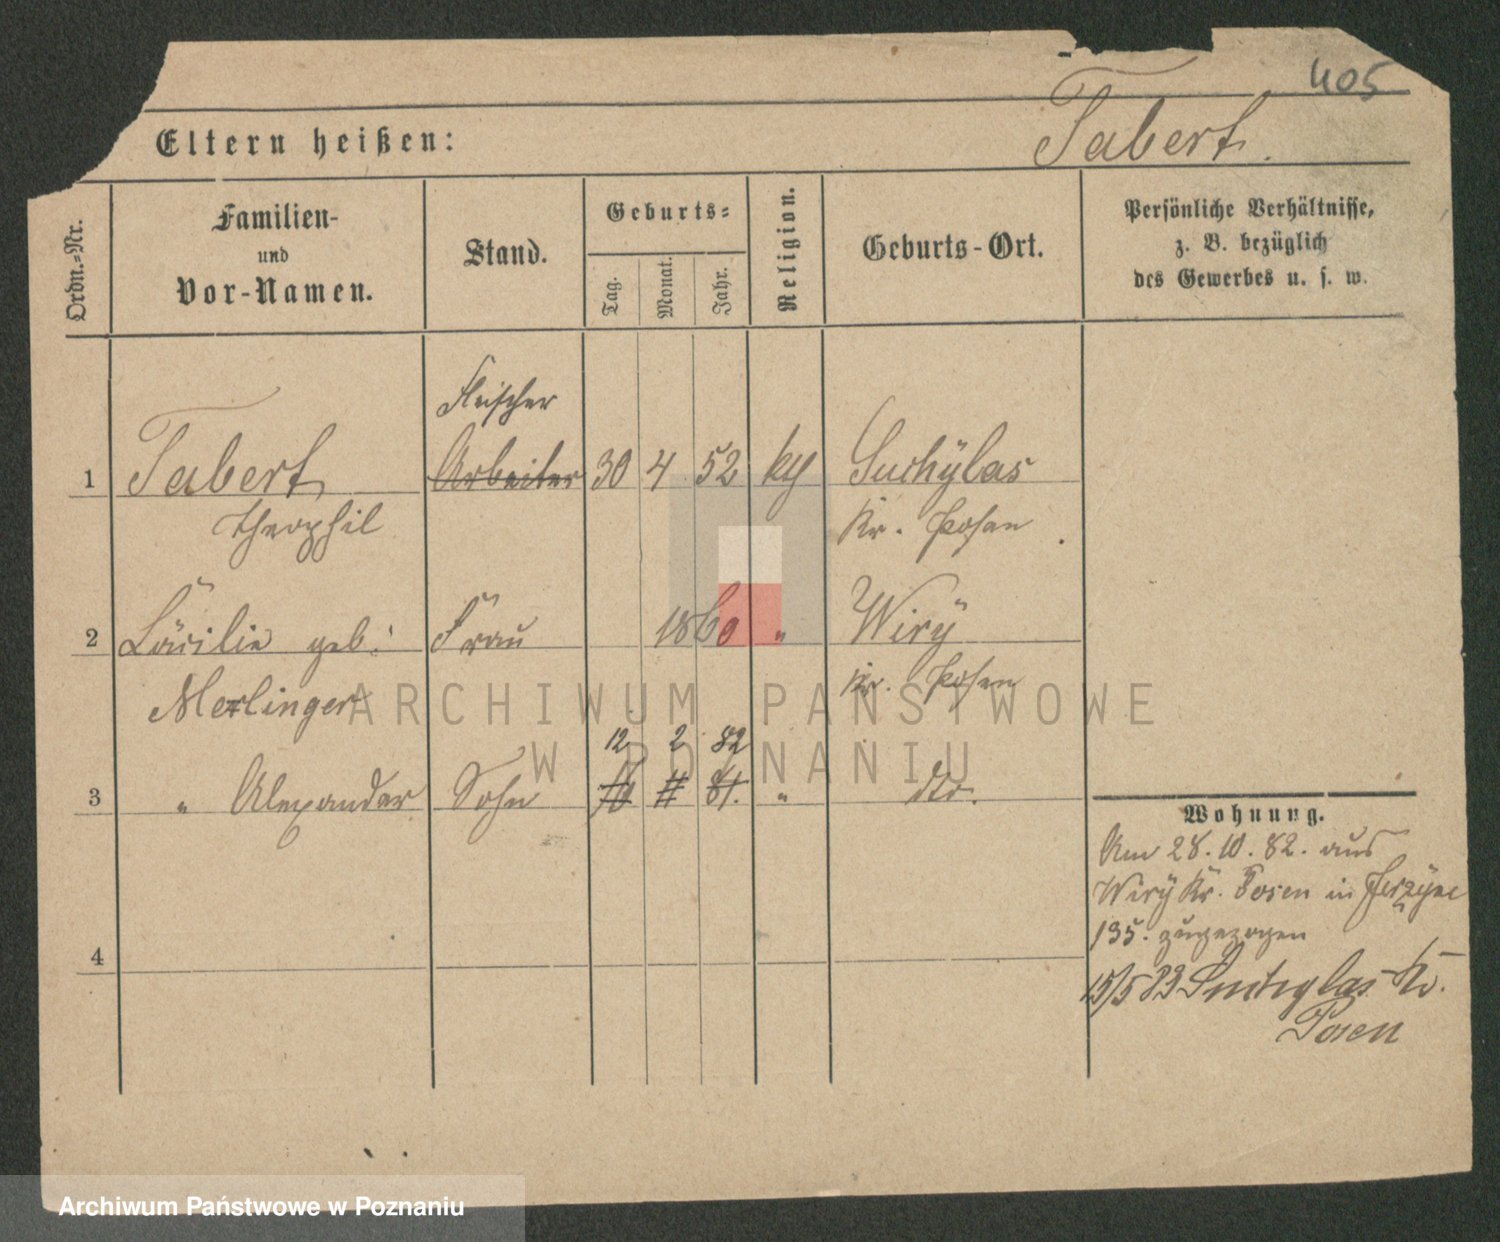 405
Eltern heißen:
Tabert.
Ordn.-Nr.
Familien-
und
Vor-Namen.
Stand.
Geburts-
Tag.
Monat.
Jahr.
Religion.
Geburts-Ort.
Persönliche Verhältnisse,
z. B. bezüglich
des Gewerbes u. s. w.
Fleischer
1 Tabert Arbeiter 30 4 52 Suchÿlas
Theophil Kr. Posen
2 Cäcilie geb: Frau 1860 " Wirÿ
Merlinger Kr. Posen
12 2 82
3 " Alexander Sohn 81. " dto.
4
Wohnung.
Am 28.10.82. aus
Wirÿ Kr. Posen in
135. zugezogen
15/5 83 Suchylas Kr.
Posen
ARCHIWUM PAŃSTWOWE
W POZNANIU
Archiwum Państwowe w Poznaniu